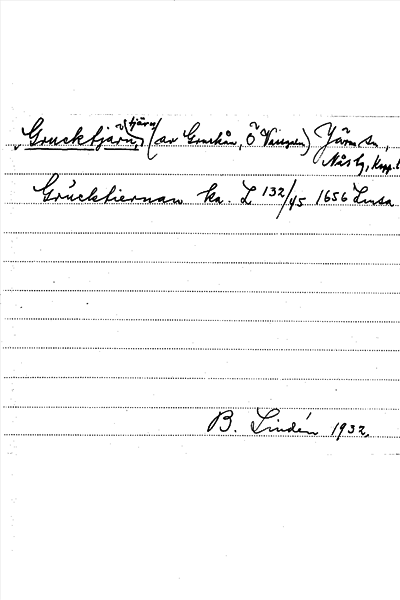 Grucktjärn, tjärn (av Gruckån, Ö Vangen) Järnsn,
Nås tg, Kopp. l
Grücktiernan ka. L 132/45 1656 Lmsa
B. Lindén 1932.